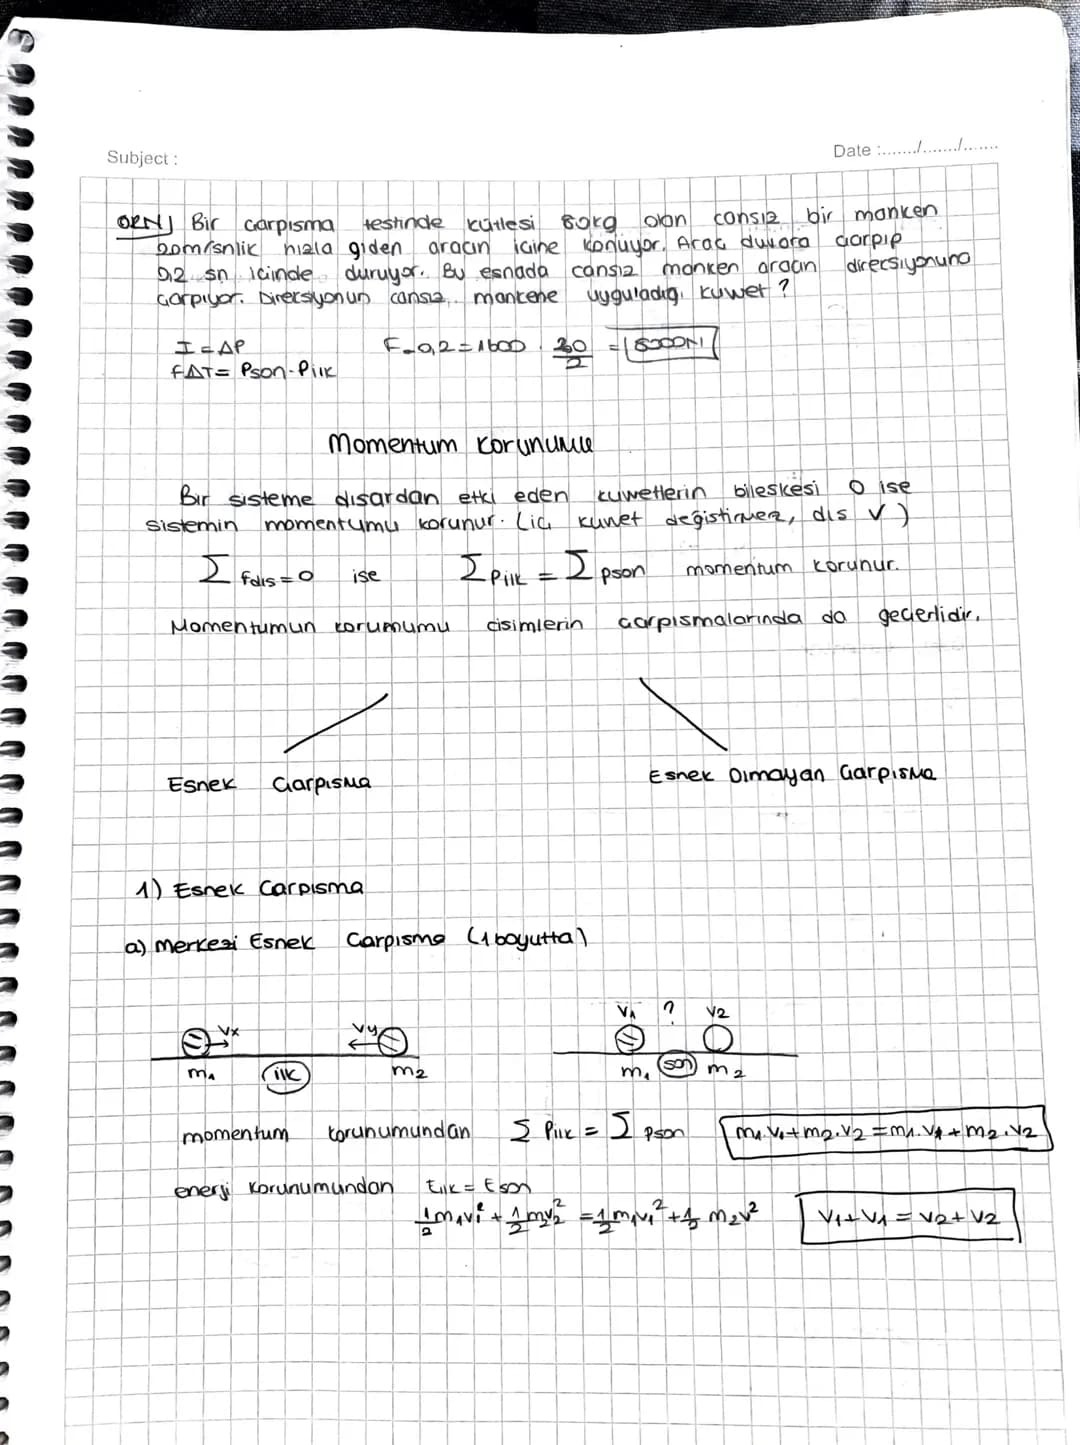 Subject :
Date :......../......../........
ÖRN) Bir çarpışma testinde kütlesi 80kg olan cansız bir manken
20m/snlik hızla giden aracın içine konuyor. Araç duvara çarpıp
0,2 sn içinde duruyor. Bu esnada cansız manken aracın direksiyonuna
çarpıyor. Direksiyonun cansız mankene uyguladığı kuvvet?
I = ΔP F-0,2=1600 · 30/2 = 8000N
FΔT= Pson-Pilk
Momentum Korunumu
Bir sisteme dışardan etki eden kuvvetlerin bileşkesi 0 ise
sistemin momentumu korunur. (iç kuvvet değiştirmez, dış √)
Σ Fdış=0 ise ΣPilk = Σpson momentum korunur.
Momentumun korumumu cisimlerin çarpışmalarında da geçerlidir.
Esnek Çarpışma Esnek Olmayan Çarpışma
1) Esnek Çarpışma
a) merkezi Esnek Çarpışma (1 boyutta)
V1 ? V2
Vx Vy
m1 ilk m2 m1 son m2
momentum korunumundan Σ Pilk = Σ pson m1.V1+m2.V2=m1.V1+m2.V2
enerji korunumundan Eilk = Eson
1/2m1v1²+1/2mv2²=1/2m1v1²+1/2 m2v² V1+V1 = V2+V2